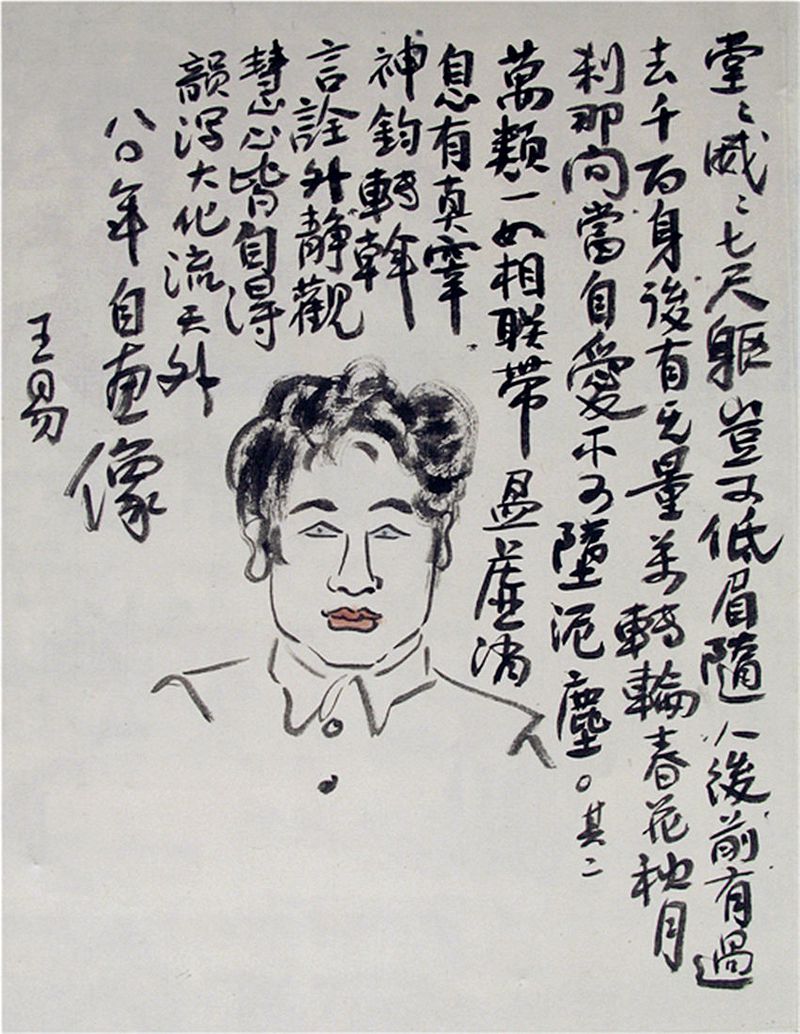 堂〻威〻七尺躯豈可低眉隨人後前有過
去千百身後有无量劫轉輪春花秋月
刹那间當自愛不可墮泥塵。其二
萬類一如相联帶盈虛消
息有真宰
神鈞轉斡
言詮外静觀
慧心皆自得
韻深大化流天外
八〇年自画像
王易